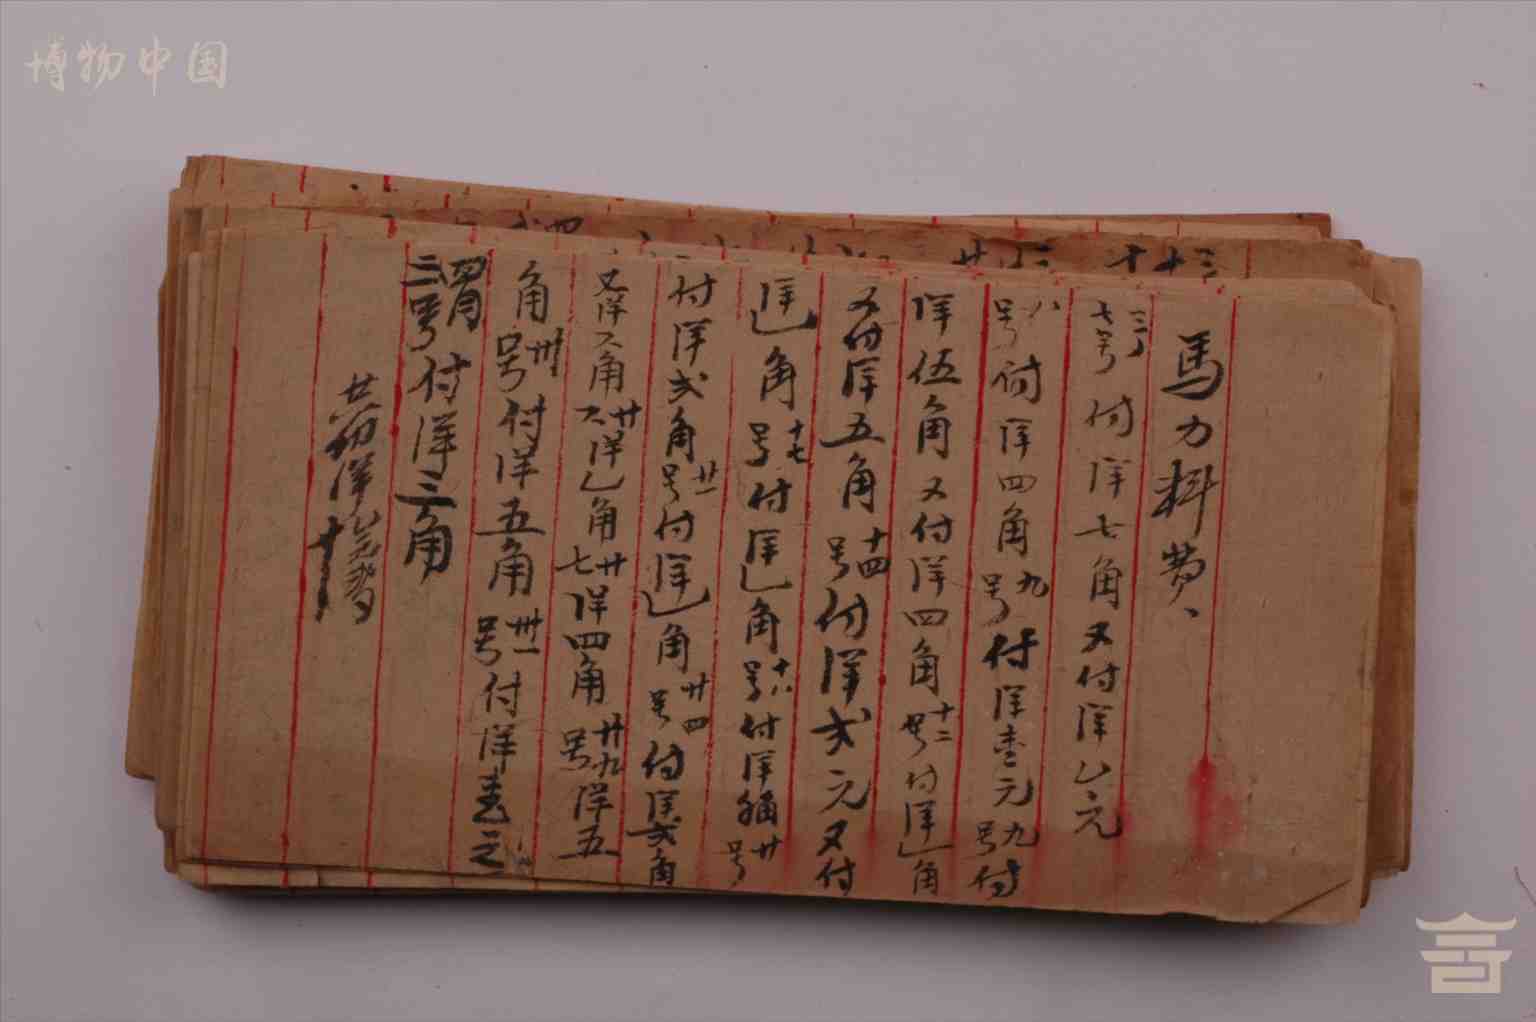 博物中国
馬力料費
三月七号付洋七角又付洋厶元
八号付洋四角九号付洋壹元九号付
洋伍角又付洋四角十二号付洋乚角
又付洋五角十四号付洋弍元又付
洋乚角十七号付洋乚角十八号付洋角廿号
付洋弍角廿一号付洋乚角廿四号付洋弍角
又洋六角廿六洋乚角廿七洋四角廿九号洋五
角卅号付洋五角卅一号付洋壹元
四月二号付洋三角
共付洋